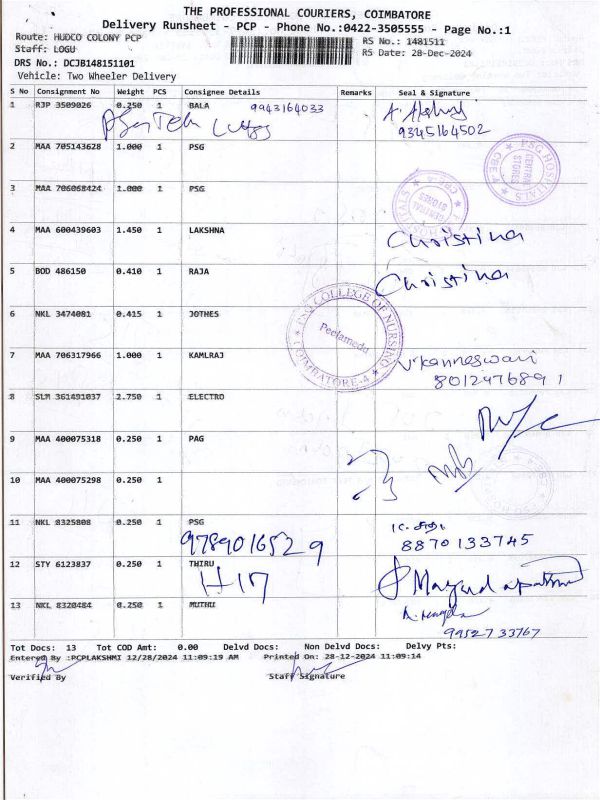 THE PROFESSIONAL COURIERS, COIMBATORE
Delivery Runsheet - PCP - Phone No.:0422-3505555 - Page No.:1
Route: HUDCO COLONY PCP RS No.: 1481511
Staff: LOGU RS Date: 28-Dec-2024
DRS No.: DCJB148151101
Vehicle: Two Wheeler Delivery
S No Consignment No Weight PCS Consignee Details Remarks Seal & Signature
1 RJP 3509026 0.250 1 BALA 9943164033
9345164502
2 MAA 705143628 1.000 1 PSG
PSG HOSPITALS CENTRAL STORES CBE-4
3 MAA 706068424 1.000 1 PSG
CENTRAL STORES
4 MAA 600439603 1.450 1 LAKSHNA Christina
5 BOD 486150 0.410 1 RAJA Christina
6 NKL 3474081 0.415 1 JOTHES
COLLEGE OF NURSING Peelamedu COIMBATORE-4
7 MAA 706317966 1.000 1 KAMLRAJ
8012476891
8 SLM 361491037 2.750 1 ELECTRO
9 MAA 400075318 0.250 1 PAG
10 MAA 400075298 0.250 1
11 NKL 8325808 0.250 1 PSG
9789016529 8870133745
12 STY 6123837 0.250 1 THIRU
H17
13 NKL 8320484 0.250 1 MUTHU
9952733767
Tot Docs: 13 Tot COD Amt: 0.00 Delvd Docs: Non Delvd Docs: Delvy Pts:
Entered By :PCPLAKSHMI 12/28/2024 11:09:19 AM Printed On: 28-12-2024 11:09:14
Verified By Staff Signature